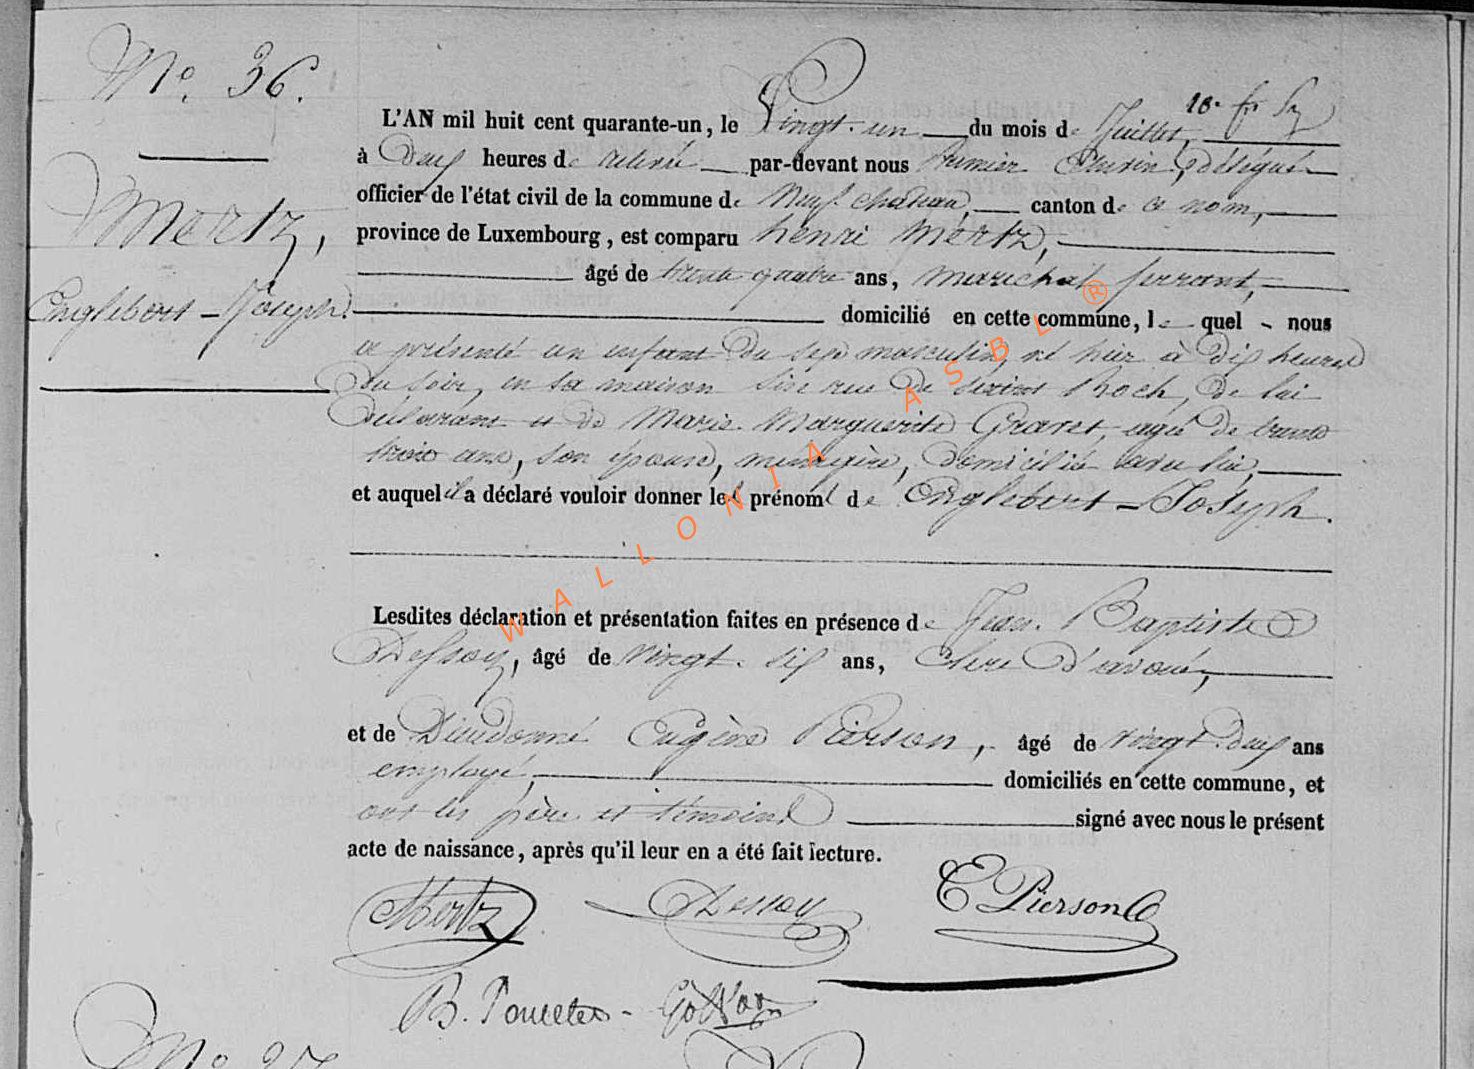 No. 36.
Mertz,
Englebert - Joseph.
L'AN mil huit cent quarante-un, le Vingt-un du mois de Juillet,
à Deux heures de relevée par-devant nous Premier Echevin, délégué
officier de l'état civil de la commune de Neufchâteau, canton de ce nom,
province de Luxembourg, est comparu henri Mertz,
âgé de trente quatre ans, maréchal ferrant,
domicilié en cette commune, lequel nous
a présenté un enfant du sexe masculin, né hier à dix heures
du soir, en sa maison sise rue de Saint Roch, de lui
déclarant et de Marie Marguerite Gravet, agée de trente
trois ans, son épouse, ménagère, domiciliée avec lui,
et auquel il a déclaré vouloir donner les prénoms de Englebert - Joseph.
Lesdites déclaration et présentation faites en présence de Jean Baptiste
Dessoy, âgé de vingt-six ans, Clerc d'avoué,
et de Dieudonné Eugène Pierson, âgé de vingt deux ans
employé, domiciliés en cette commune, et
ont les père et témoins signé avec nous le présent
acte de naissance, après qu'il leur en a été fait lecture.
Mertz Dessoy E Pierson
B. Poncelet
No 37
WALLONIA ASBL ®